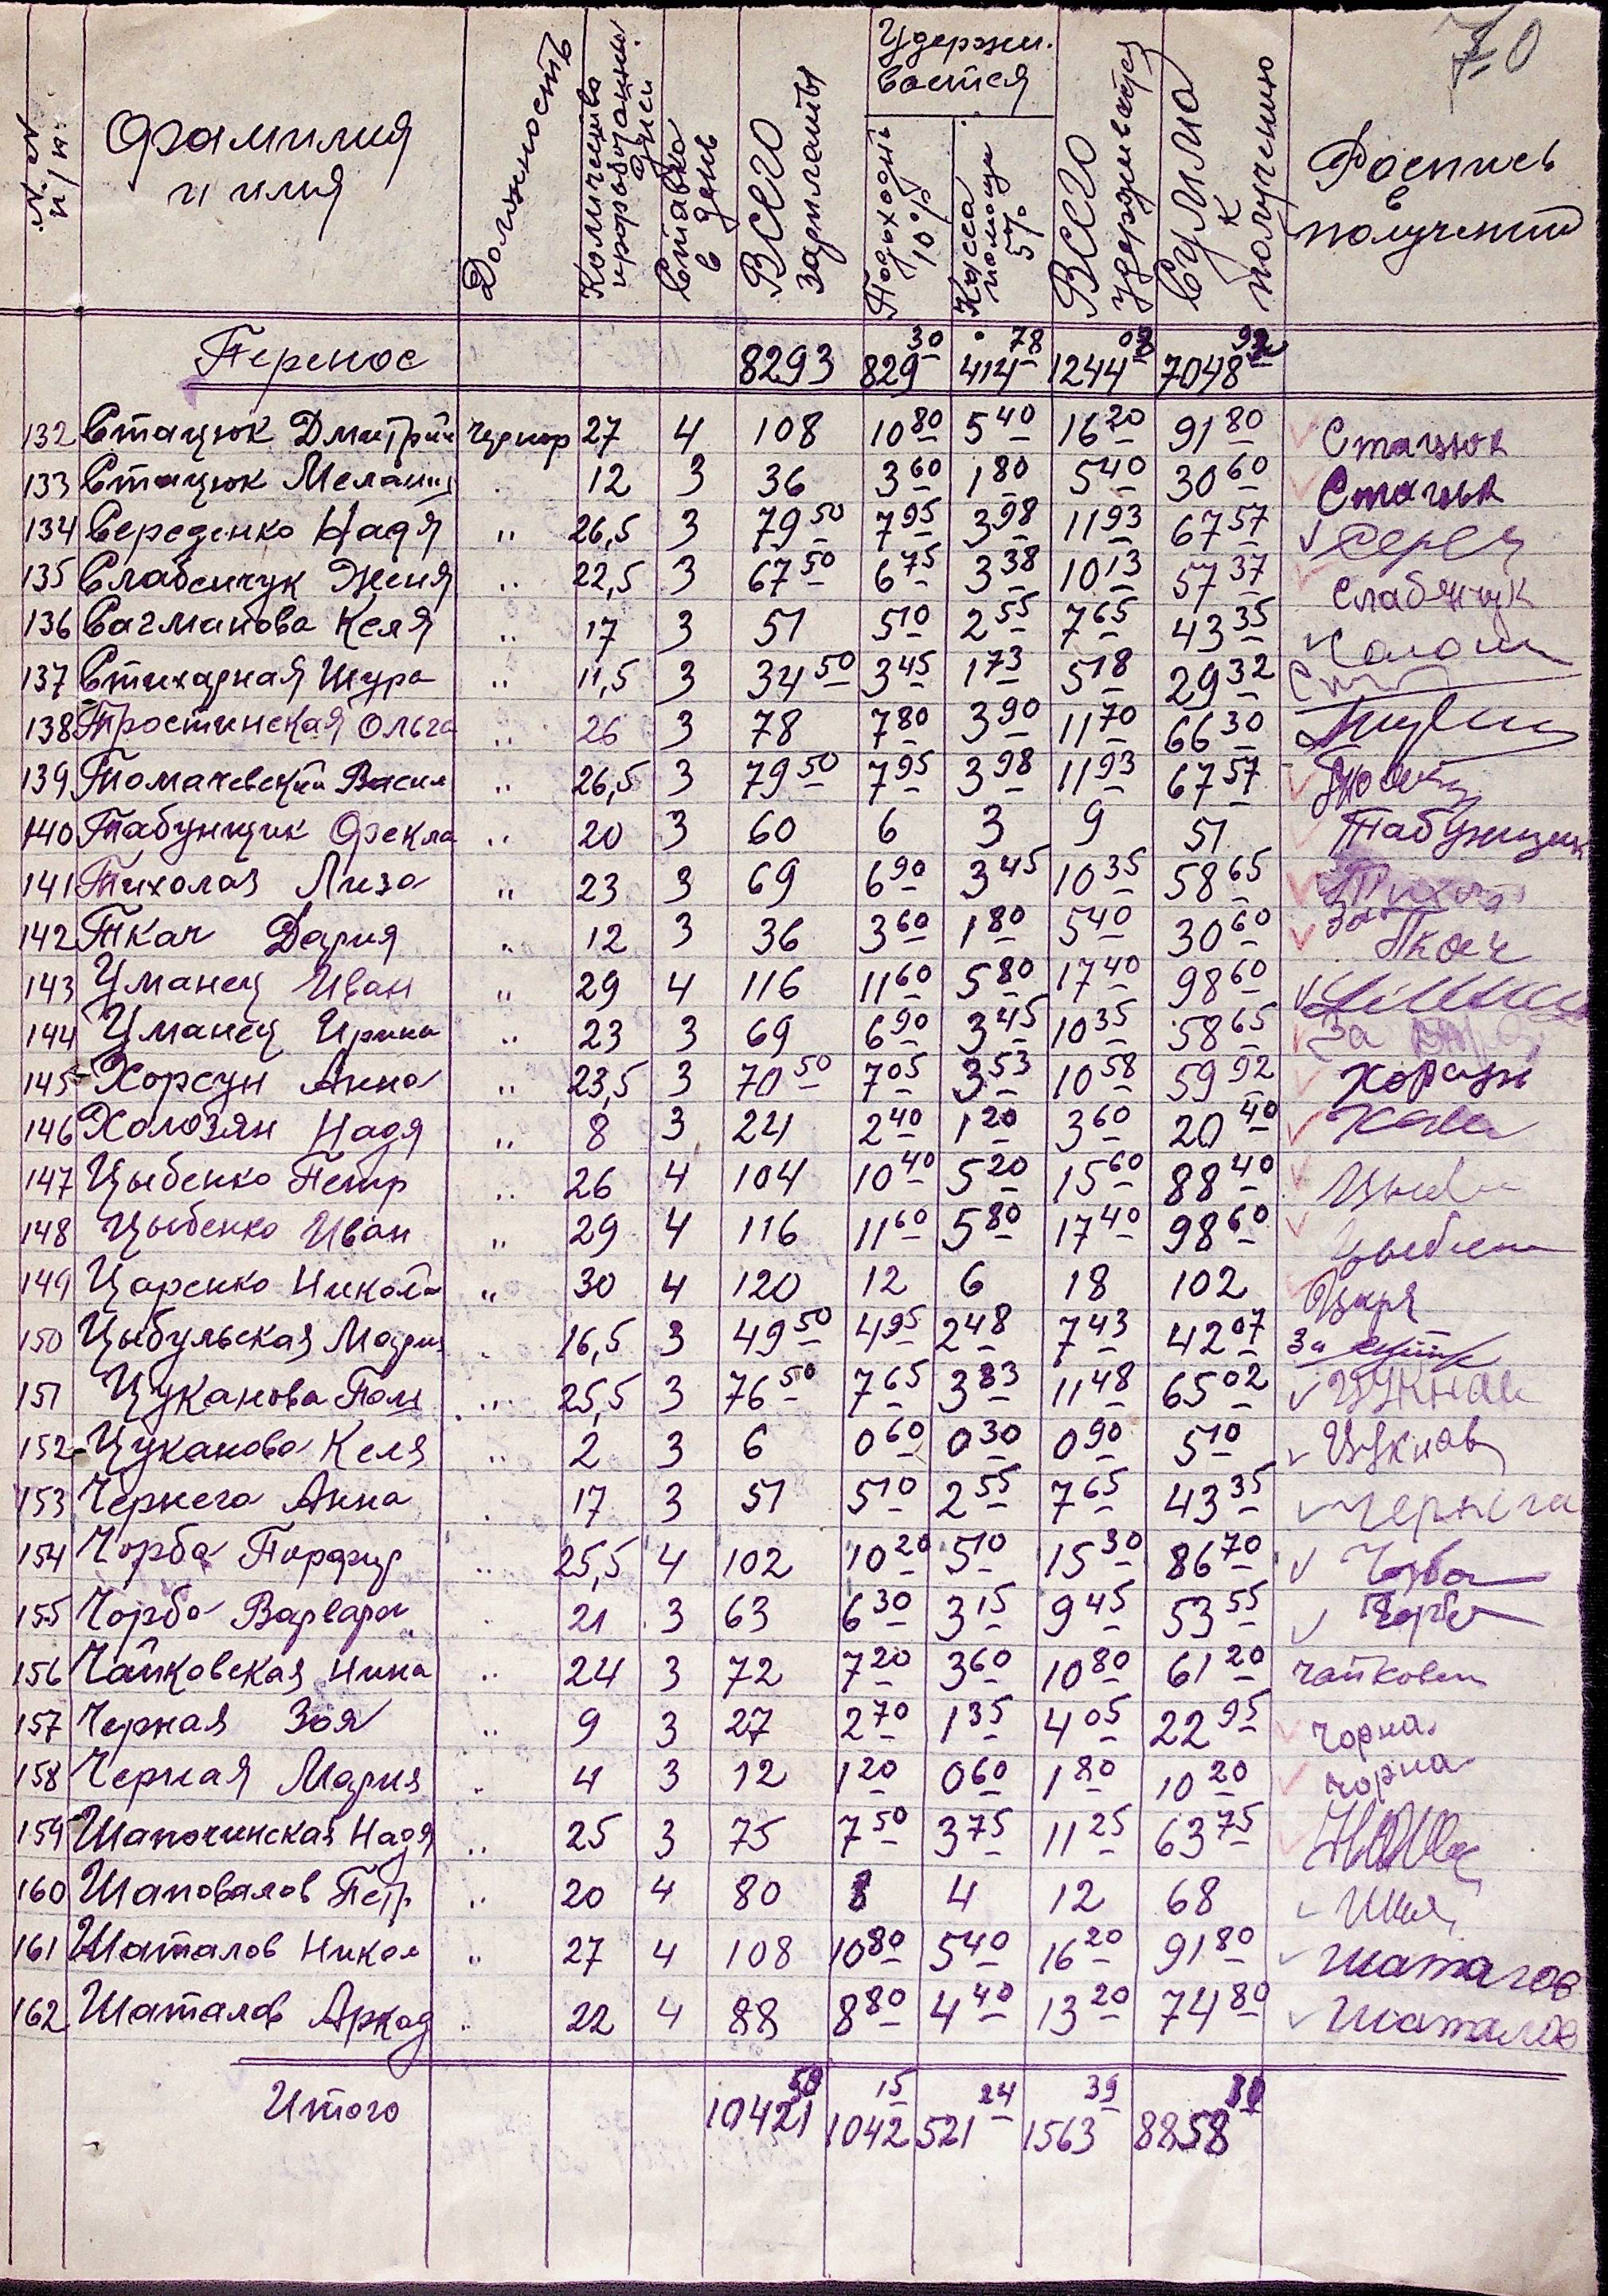 70
№№ п/п Фамилия и имя Должность Количество проработанн. дней Ставка в день Всего зарплаты Удержи-вается Подоходн 10% Касса помощи 5% Всего удерживается Сумма к получению Роспись в получении
Перенос 8293 829 30 414 78 1244 08 7048 92
132 Стацюк Дмитрий чернор 27 4 108 10 80 5 40 16 20 91 80 Стацюк
133 Стацюк Мелания " 12 3 36 3 60 1 80 5 40 30 60 Стацюк
134 Середенко Надя " 26,5 3 79 50 7 95 3 98 11 93 67 57 Серед
135 Слабенчук Женя " 22,5 3 67 50 6 75 3 38 10 13 57 37 Слабэнчук
136 Вагманова Келя " 17 3 51 5 10 2 55 7 65 43 35
137 Стихарная Шура " 11,5 3 34 50 3 45 1 73 5 18 29 32
138 Тростинская Ольга " 26 3 78 7 80 3 90 11 70 66 30
139 Томачевский Васил " 26,5 3 79 50 7 95 3 98 11 93 67 57
140 Табунщик Фекла " 20 3 60 6 3 9 51 Табунщик
141 Тихолаз Лиза " 23 3 69 6 90 3 45 10 35 58 65 Тихол
142 Ткач Дария " 12 3 36 3 60 1 80 5 40 30 60 За Ткач
143 Уманец Иван " 29 4 116 11 60 5 80 17 40 98 60
144 Уманец Ирина " 23 3 69 6 90 3 45 10 35 58 65 За
145 Хорсун Анна " 23,5 3 70 50 7 05 3 53 10 58 59 92 Хорсун
146 Холозян Надя " 8 3 24 2 40 1 20 3 60 20 40
147 Цыбенко Петр " 26 4 104 10 40 5 20 15 60 88 40 Цыб
148 Цыбенко Иван " 29 4 116 11 60 5 80 17 40 98 60 Цыбен
149 Царенко Никола " 30 4 120 12 6 18 102 Царя
150 Цыбульская Мария " 16,5 3 49 50 4 95 2 48 7 43 42 07 За
151 Цуканова Поля " 25,5 3 76 50 7 65 3 83 11 48 65 02 Цукнав
152 Цуканова Келя " 2 3 6 0 60 0 30 0 90 5 10 Цукнав
153 Чернега Анна " 17 3 51 5 10 2 55 7 65 43 35 Чернега
154 Чорба Порфир " 25,5 4 102 10 20 5 10 15 30 86 70 Чорба
155 Чорба Варвара " 21 3 63 6 30 3 15 9 45 53 55 Чорба
156 Чайковская Нина " 24 3 72 7 20 3 60 10 80 61 20 Чайковск
157 Черная Зоя " 9 3 27 2 70 1 35 4 05 22 95 Чорна
158 Черная Мария " 4 3 12 1 20 0 60 1 80 10 20 Чорна
159 Шапочинская Надя " 25 3 75 7 50 3 75 11 25 63 75
160 Шаповалов Петр " 20 4 80 8 4 12 68
161 Шаталов Никол " 27 4 108 10 80 5 40 16 20 91 80 Шаталов
162 Шаталов Аркад " 22 4 88 8 80 4 40 13 20 74 80 Шаталов
Итого 10421 50 1042 15 521 24 1563 39 8858